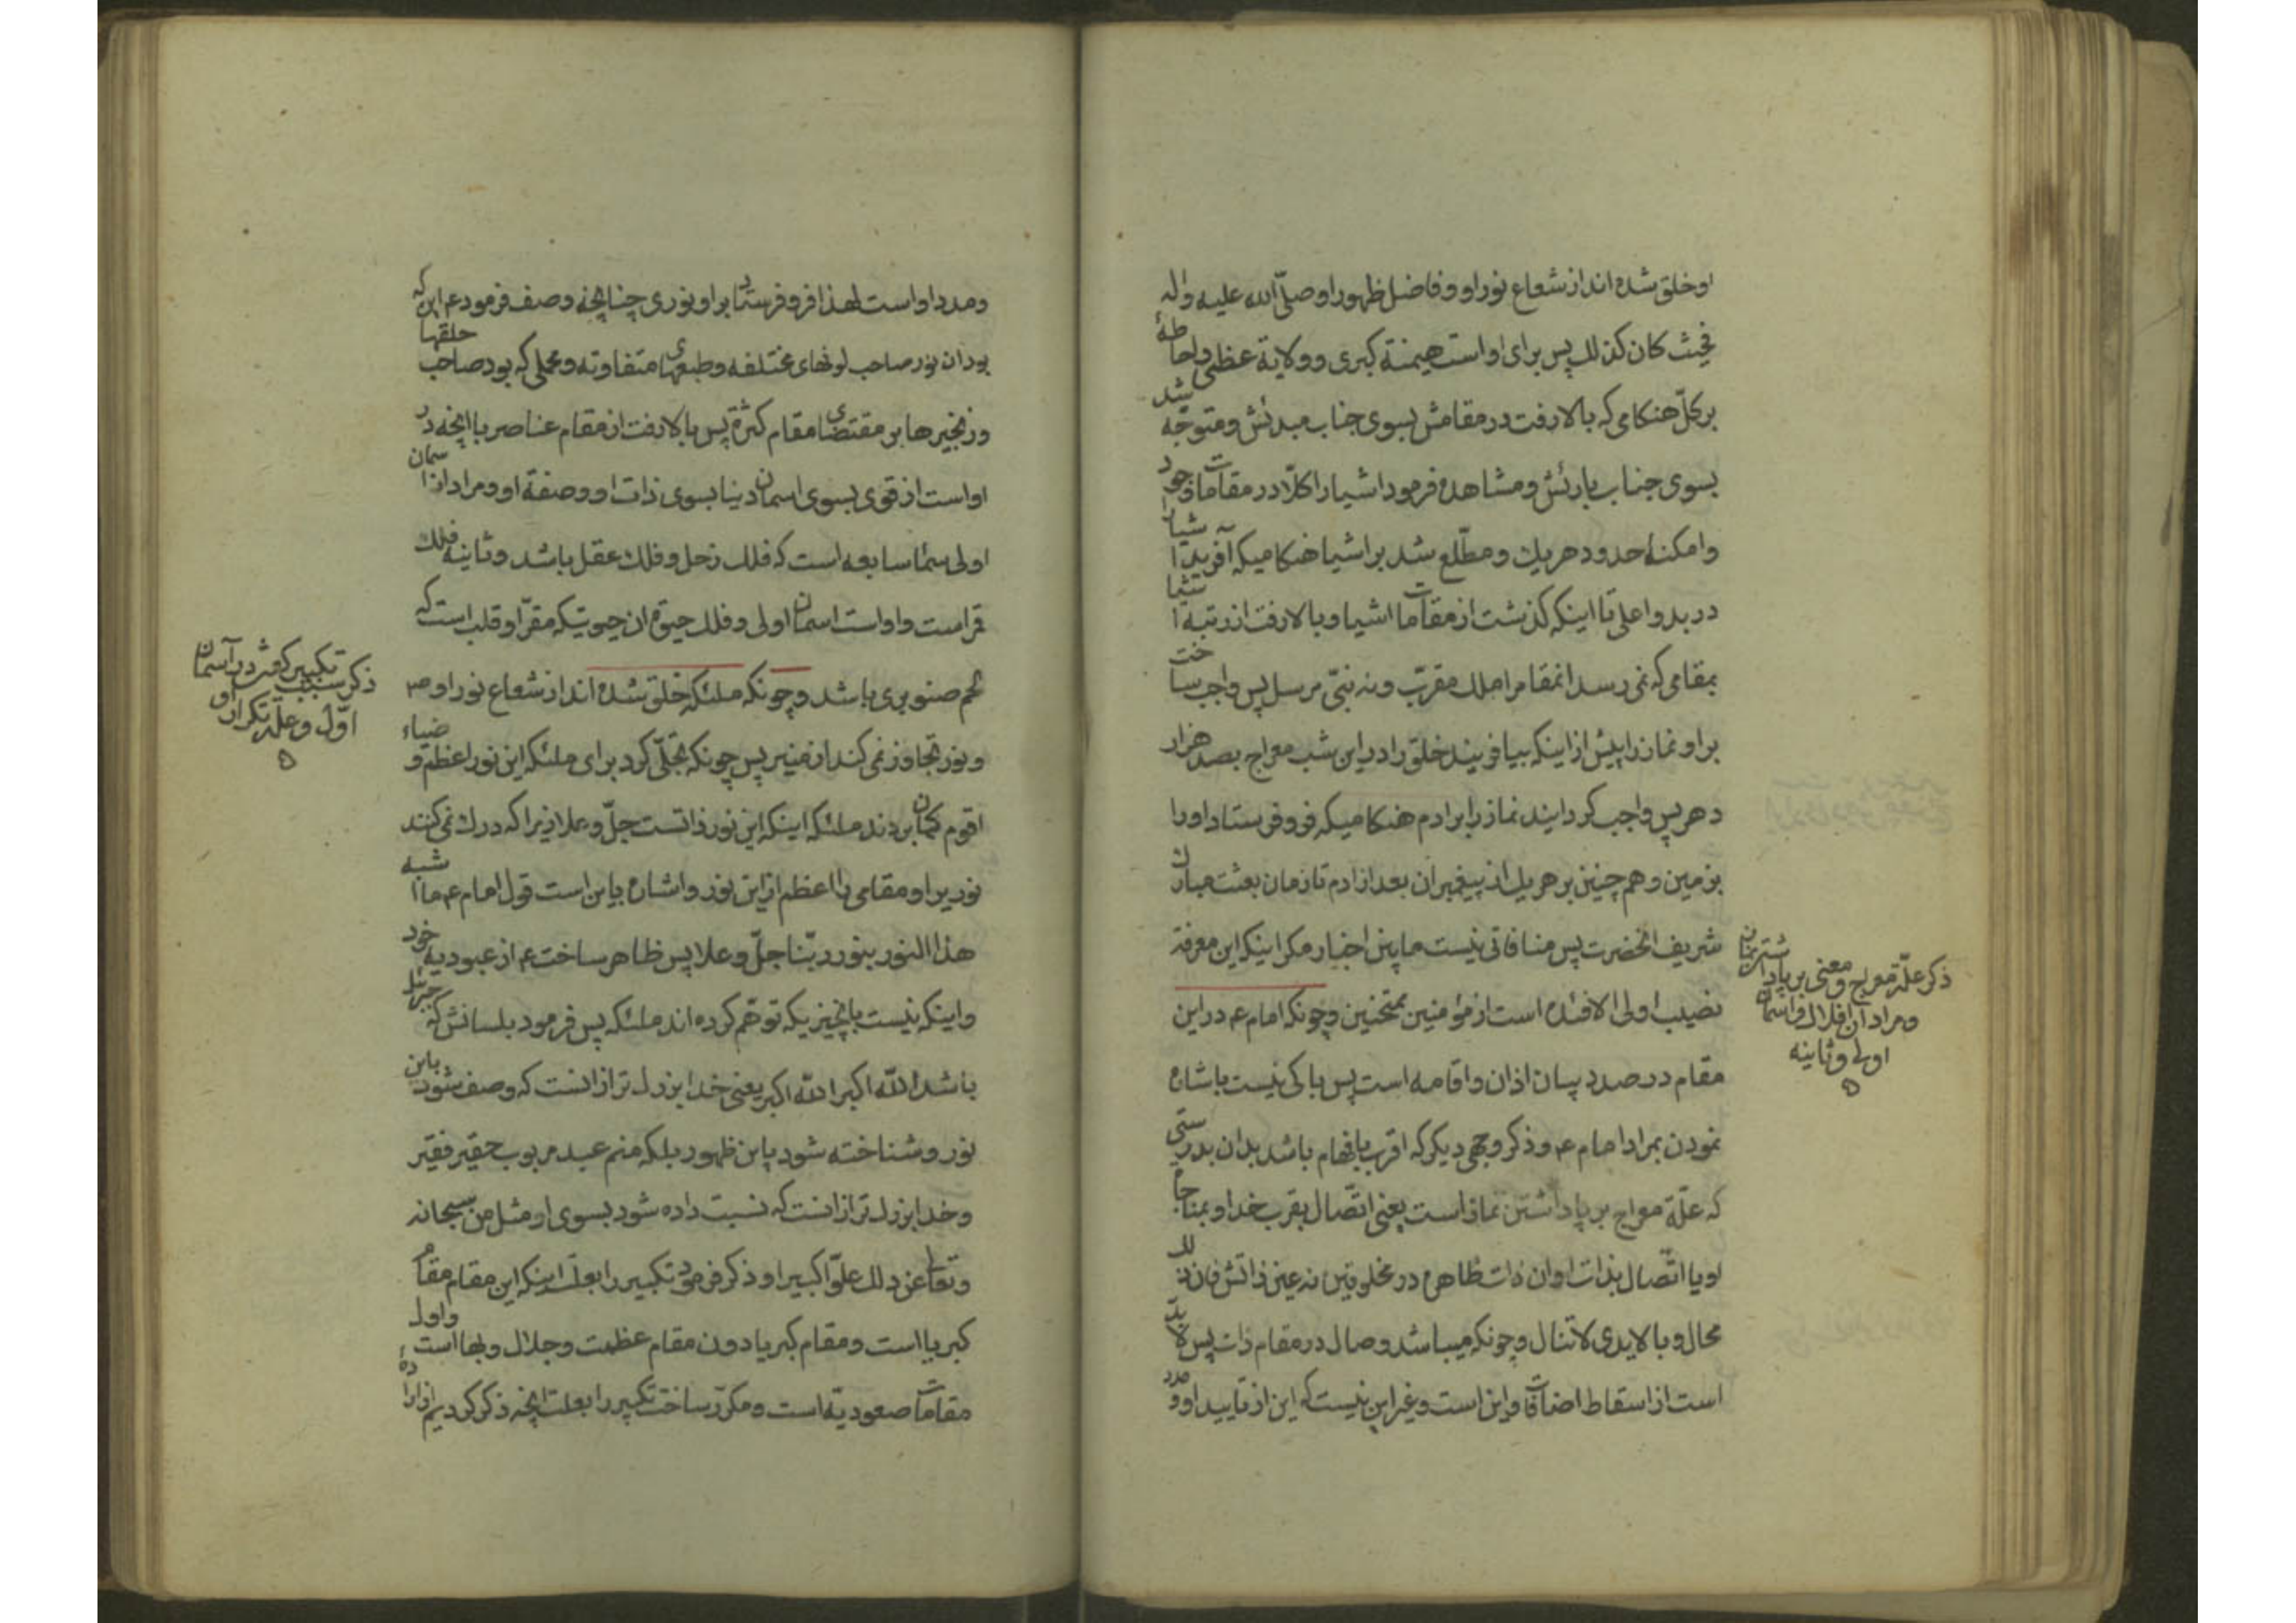 او خلق شده اند از شعاع نور او و فاضل ظهور او صلّی الله علیه واله
فحیث کان کذلك پس برای او است هیمنة کبری و ولایة عظمی واحاطهٔ
بر کلّ هنکامی که بالا رفت در مقامش بسوی جناب مبدئش و متوجّه شد
بسوی جناب بارئش و مشاهده فرمود اشیا را کلّا در مقامات وجود
وامکنهٔ حدود هریك و مطّلع شد بر اشیا هنکامیکه آفرید اشیا را
در بدو اعلی تا اینکه کذشت از مقامات اشیا و بالا رفت از رتبه اشیا
بمقامی که نمی رسد انمقام را ملك مقرّب و نه نبیّ مرسل پس واجب ساخت
بر او نماز را پیش از اینکه بیافریند خلق را در این شب معراج بصد هزار
دهر پس واجب کردانیند نماز را بر ادم هنکامیکه فرو فرستاد او را
بزمین و هم چنین بر هریك از پیغمبران بعد از ادم تا زمان بعثت مبارك
شریف انحضرت پس منافاتی نیست مابین اخبار مکر اینکه این معرفة
نصیب اولی الافئده است از مؤمنین ممتحنین و چونکه امام ع در این
مقام در صدد بیان اذان و اقامه است پس باکی نیست باشاره
نمودن بمراد امام ع و ذکر وجهی دیکر که اقرب بافهام باشد بدان بدرستی
که علّة معراج بر پا داشتن نماز است یعنی اتّصال بقرب خدا و بمناجاة
او یا اتّصال بذات او ان ذات ظاهره در مخلوقین نه عین ذاتش فان ذلك
محال و بالایدی لاتنال و چونکه میباشد وصال در مقام ذات پس لابدّ
است از اسقاط اضافات و این است و غیر این نیست که این از تایید او و مدد
ذکر علّة معراج و معنی بر پا داشتن نمان
و مراد آن افلاك و اسمان
اولی و ثانیه
و مدد او است لهذا فرو فرستاد بر او نوری چنانچه وصف فرمود ع این که
بود ان نور صاحب لونهای مختلفه و طبعهای متفاوته و محملی که بود صاحب حلقها
و زنجیرها بر مقتضای مقام کثرة پس بالا رفت از مقام عناصر با انچه در
او است از قوی بسوی اسمان دنیا بسوی ذات او و صفة او و مراد از اسمان
اولی سماء سابعه است که فلك زحل و فلك عقل باشد و ثانیه فلك
قمر است و او است اسمان اولی و فلك حیوة ان حیوتیکه مقرّ او قلب است که
لحم صنوبری باشد و چونکه ملئکه خلق شده اند از شعاع نور او ص
و نور تجاوز نمی کند از منیر پس چونکه تجلّی کرد برای ملئکه این نور اعظم و ضیاء
اقوم کمان بردند ملئکه اینکه این نور ذاتست جلّ و علا زیرا که درك نمی کنند
نوریرا و مقامی را اعظم از این نور و اشاره باین است قول امام ع ما اشبه
هذا النور بنور ربّنا جلّ و علا پس ظاهر ساخت ع از عبودیه خود
و اینکه نیست بانچیزیکه توهّم کرده اند ملئکه پس فرمود بلسانش که جبرئیل
باشد الله اکبر الله اکبر یعنی خدا بزرك تر از انست که وصف شود باین
نور و شناخته شود باین ظهور بلکه منم عبد مربوب حقیر فقیر
و خدا بزرك تر از انست که نسبت داده شود بسوی او مثل من سبحانه
و تعالی عن ذلك علوّا کبیرا و ذکر فرمود تکبیر را بعلّت اینکه این مقام مقام
کبریا است و مقام کبریا دون مقام عظمت و جلال و بهااست و اول
مقامات صعودیّه است و مکرّر ساخت تکبیر را بعلّت انچه ذکر کردیم
ذکر سبب تکبیر کفتن در آسمان
اوّل و علّة تکرار او